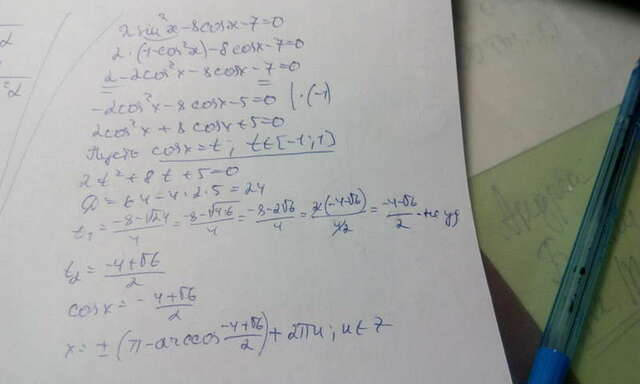 2sin²x-8cosx-7=0
2·(1-cos²x)-8cosx-7=0
2-2cos²x-8cosx-7=0
-2cos²x-8cosx-5=0 |·(-1)
2cos²x+8cosx+5=0
Пусть cosx=t; t∈[-1;1]
2t²+8t+5=0
D=64-4·2·5=24
t₁=(-8-√24)/4=(-8-√4·6)/4=(-8-2√6)/4=2(-4-√6)/42=(-4-√6)/2 - не уд
t₂=(-4+√6)/2
cosx=-(4+√6)/2
x=±(π-arccos(-4+√6)/2)+2πn; n∈Z